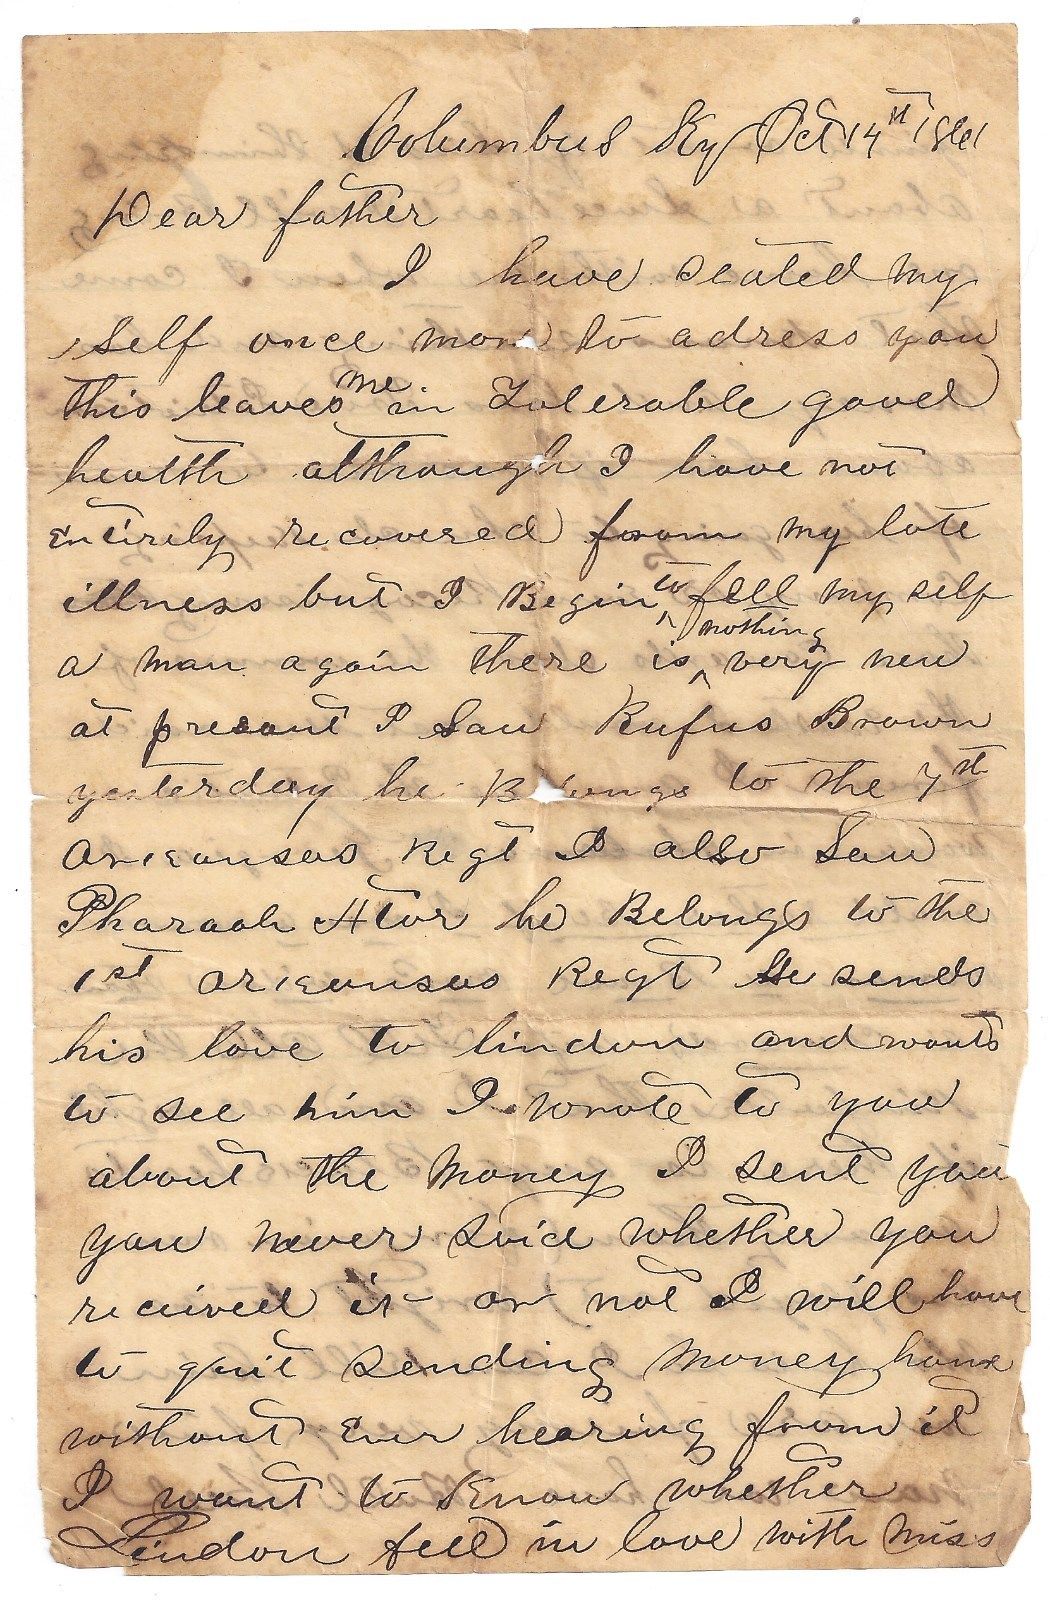 Columbus Ky Oct 14st 1861
Dear father
I have seated my
self once more to adress you
this leaves me in Tolerable good
health although I have not
entirely recovered from my late
illness but I Begin to fell my self
a man again there is nothing very new
at presant I Saw Rufus Brown
yesterday he Belongs to the 7st
arkansas Regt I also Saw
Pharaoh he Belongs to the
1st arkansas Regt He sends
his love to lindon and wants
to see him I wrote to you
about the money I sent you
you never said whether you
received it or not I will have
to quit sending money home
without ever hearing from it
I want to Know whether
Lindon fell in love with miss